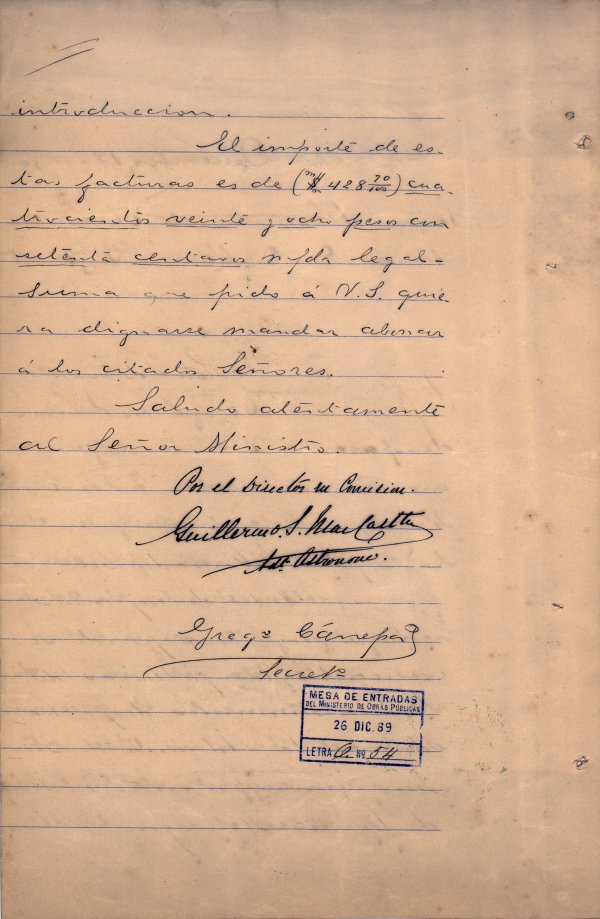 introduccion.
El importe de es-
tas facturas es de (m$n 428 70/100) cua-
trocientos veinte y ocho pesos con
setenta centavos m/da legal-
Suma que pido á V.S. quie-
ra dignarse mandar abonar
á los citados Señores.
Saludo aténtamente
al Señor Ministro.
Por el Director en Comision.
Guillermo. S. MacCarthy
Ast. Astronomo.
Gregº Cánepa
Secretº
MESA DE ENTRADAS
DEL MINISTERIO DE OBRAS PÚBLICAS
26 DIC. 89
LETRA O. Nº 54